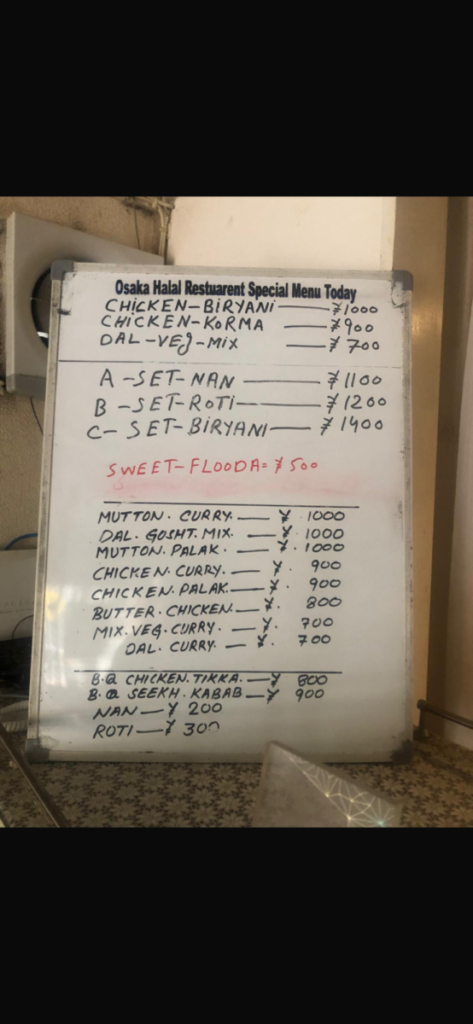 Osaka Halal Restuarent Special Menu Today
CHICKEN-BIRYANI — ¥1000
CHICKEN-KORMA — ¥900
DAL-VEG-MIX — ¥700
A-SET-NAN — ¥1100
B-SET-ROTI — ¥1200
C-SET-BIRYANI — ¥1400
SWEET-FLOODA=¥500
MUTTON. CURRY. — ¥. 1000
DAL. GOSHT. MIX. — ¥. 1000
MUTTON. PALAK. — ¥. 1000
CHICKEN. CURRY. — ¥. 900
CHICKEN. PALAK. — ¥. 900
BUTTER. CHICKEN — ¥. 800
MIX. VEG. CURRY. — ¥. 700
DAL. CURRY. — ¥. 700
B.Q CHICKEN. TIKKA. — ¥ 800
B.Q SEEKH. KABAB — ¥ 900
NAN — ¥ 200
ROTI — ¥ 300